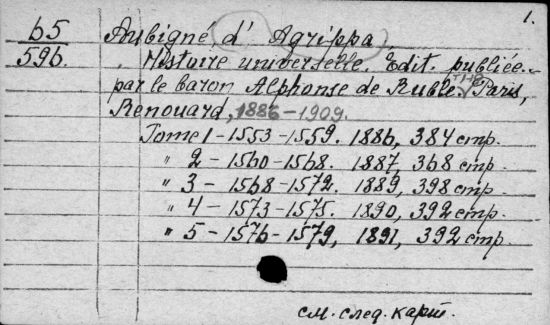 1.
65
596
Aubigné, d' Agrippa
Histoire universelle. Edit. publiée
par le baron Alphonse de Ruble. T. 1-10 Paris,
Renouard, 1886-1909.
Tome 1 - 1553-1559. 1886, 384 стр.
" 2 - 1560-1568. 1887, 368 стр.
" 3 - 1568-1572. 1889, 398 стр.
" 4 - 1573-1575. 1890, 392 стр.
" 5 - 1576-1579, 1891, 392 стр.
см. след. карт.